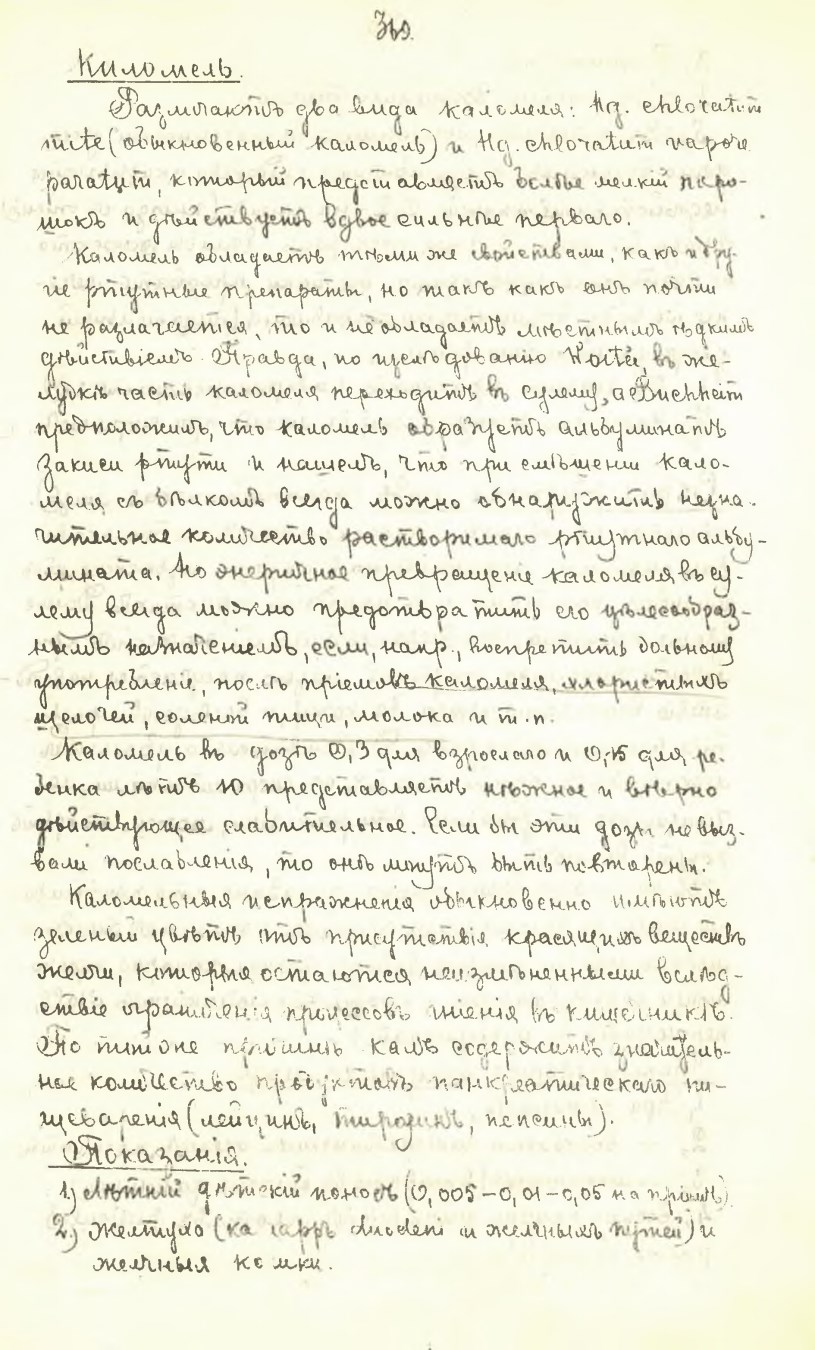 Каломель.
Различаютъ два вида каломеля: Hg. chloratum
mite (обыкновенный каломель) и Hg. chloratum vapore
paratum, который представляетъ более мелкій поро-
шокъ и дѣйствуетъ вдвое сильнѣе перваго.
Каломель обладаетъ тѣми же свойствами, какъ и дру-
гіе ртутные препараты, но такъ какъ онъ почти
не разлагается, то и не обладаетъ мѣстнымъ ѣдкимъ
дѣйствіемъ. Правда, по изслѣдованію въ же-
лудкѣ часть каломеля переходитъ въ сулему, а Buchheim
предположилъ, что каломель образуетъ альбуминатъ
закиси ртути и нашелъ, что при смѣшеніи кало-
меля съ бѣлкомъ всегда можно обнаружить незна-
чительное количество растворимаго ртутнаго альбу-
мината. Но энергичное превращеніе каломеля въ су-
лему всегда можно предотвратить его цѣлесообраз-
нымъ назначеніемъ, если, напр., воспретить больному
употребленіе, послѣ пріемовъ каломеля, хлористыхъ
щелочей, соленой пищи, молока и т. п.
Каломель въ дозѣ 0,3 для взрослаго и 0,15 для ре-
бенка лѣтъ 10 представляетъ нѣжное и вѣрно
дѣйствующее слабительное. Если бы эти дозы не выз-
вали послабленія, то онѣ могутъ быть повторены.
Каломельныя испражненія обыкновенно имѣютъ
зеленый цвѣтъ отъ присутствія красящихъ веществъ
желчи, которыя остаются неизмѣненными вслѣд-
ствіе ограниченія процессовъ гніенія въ кишечникѣ.
По той же причинѣ калъ содержитъ значитель-
ное количество продуктовъ панкреатическаго пи-
щеваренія (лейцинъ, тирозинъ, пепсины).
Показанія.
1) Лѣтній дѣтскій поносъ (0,005 – 0,01 – 0,05 на пріемъ)
2) Желтуха (катарръ duodeni и желчныхъ путей) и
желчныя камки.